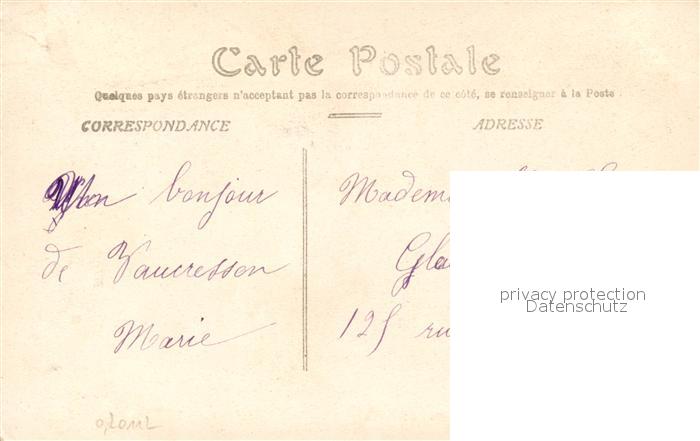 Carte Postale
Quelques pays étrangers n'acceptant pas la correspondance de ce côté, se renseigner à la Poste
CORRESPONDANCE
ADRESSE
bonjour
de Vaucresson
Marie
Madem
Gla
125 ru
privacy protection
Datenschutz